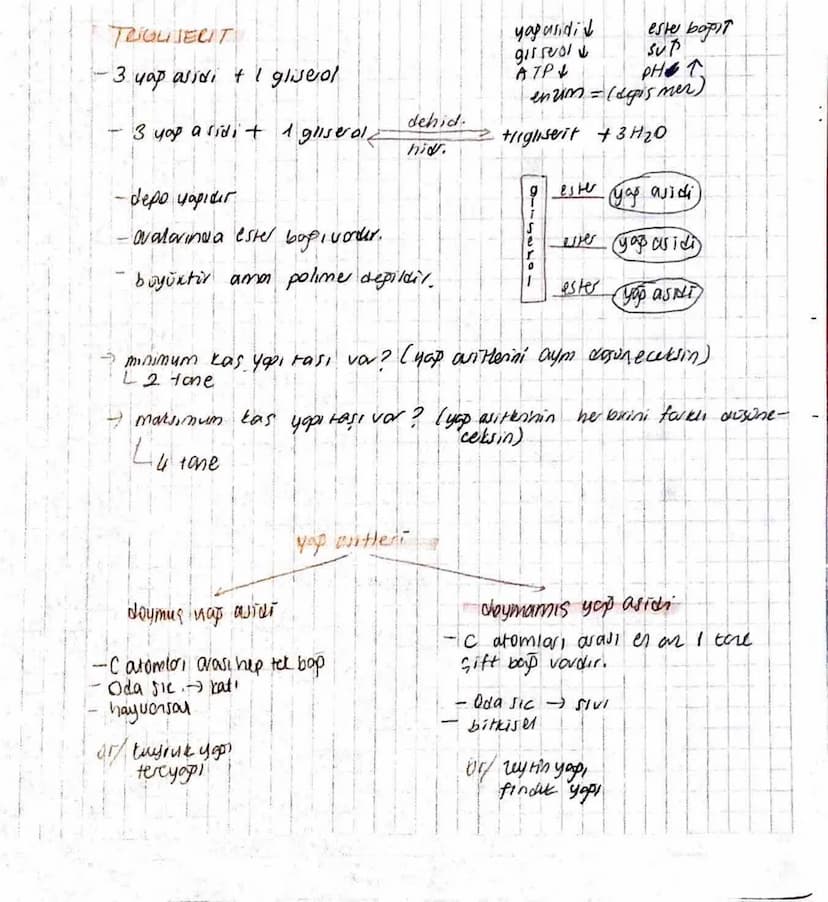 TRİGLİSERİT
yağ asidi ↓ ester bağı ↑
gliserol ↓ su ↑
ATP ↓ pH ↑
enzim = (değişmez)
- 3 yağ asidi + 1 gliserol
- 3 yağ asidi + 1 gliserol dehid. trigliserit + 3H₂O
hidr.
- depo yapıdır
- aralarında ester bağı vardır.
- büyüktür ama polimer değildir.
gliserol
ester yağ asidi
ester yağ asidi
ester yağ asidi
→ minimum kaç yapı taşı var? (yağ asitlerini aynı düşüneceksin)
↳ 2 tane
→ maksimum kaç yapı taşı var? (yağ asitlerinin herbirini farklı düşüne-
ceksin)
↳ 4 tane
yağ asitleri
doymuş yağ asidi
- C atomları arası hep tek bağ
- Oda sıc. → katı
- hayvansal
ör/ kuyruk yağı
tereyağı
doymamış yağ asidi
- C atomları arası en az 1 tane
çift bağ vardır.
- Oda sıc → sıvı
- bitkisel
ör/ zeytin yağı,
fındık yağı